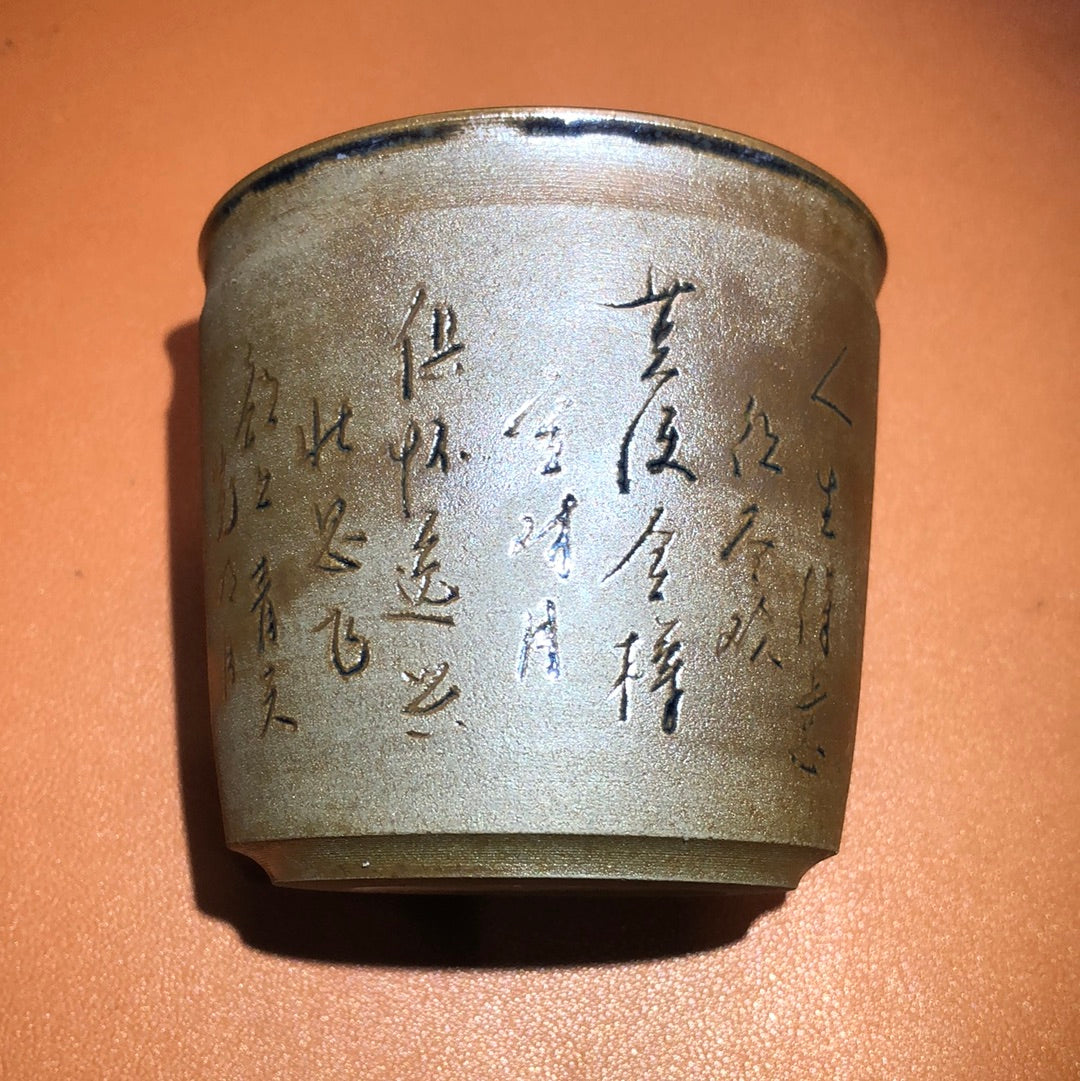 人生得意
须尽欢
莫使金樽
空对月
俱怀逸兴
壮思飞
欲上青天
揽明月